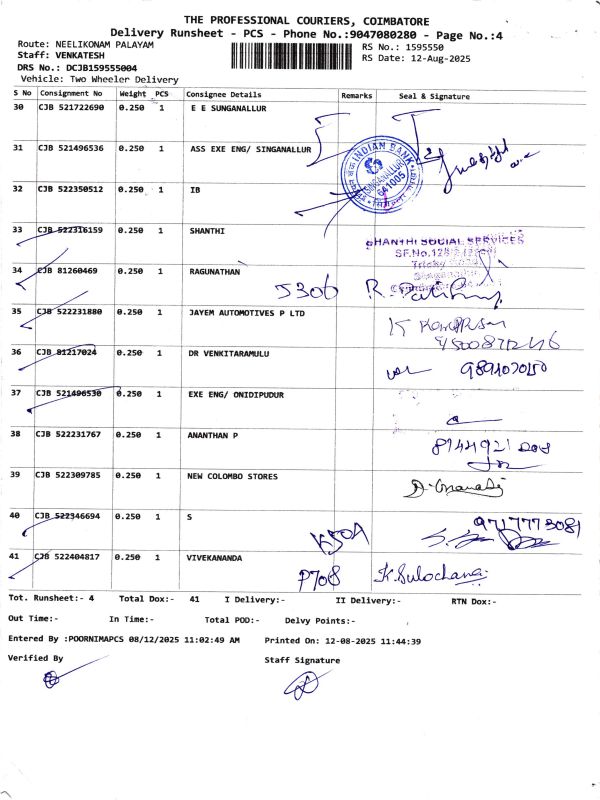 THE PROFESSIONAL COURIERS, COIMBATORE
Delivery Runsheet - PCS - Phone No.:9047080280 - Page No.:4
Route: NEELIKONAM PALAYAM
RS No.: 1595550
Staff: VENKATESH
RS Date: 12-Aug-2025
DRS No.: DCJB159555004
Vehicle: Two Wheeler Delivery
S No Consignment No Weight PCS Consignee Details Remarks Seal & Signature
30 CJB 521722690 0.250 1 E E SUNGANALLUR
31 CJB 521496536 0.250 1 ASS EXE ENG/ SINGANALLUR
INDIAN BANK
SINGANALLUR
641005
32 CJB 522350512 0.250 1 IB
33 CJB 522316159 0.250 1 SHANTHI
SHANTHI SOCIAL SERVICES
34 CJB 81260469 0.250 1 RAGUNATHAN
5306
35 CJB 522231880 0.250 1 JAYEM AUTOMOTIVES P LTD
36 CJB 81217024 0.250 1 DR VENKITARAMULU
37 CJB 521496530 0.250 1 EXE ENG/ ONIDIPUDUR
38 CJB 522231767 0.250 1 ANANTHAN P
39 CJB 522309785 0.250 1 NEW COLOMBO STORES
40 CJB 522346694 0.250 1 S
K50A
41 CJB 522404817 0.250 1 VIVEKANANDA
P708 K.Sulochana
Tot. Runsheet:- 4 Total Dox:- 41 I Delivery:- II Delivery:- RTN Dox:-
Out Time:- In Time:- Total POD:- Delvy Points:-
Entered By :POORNIMAPCS 08/12/2025 11:02:49 AM Printed On: 12-08-2025 11:44:39
Verified By Staff Signature